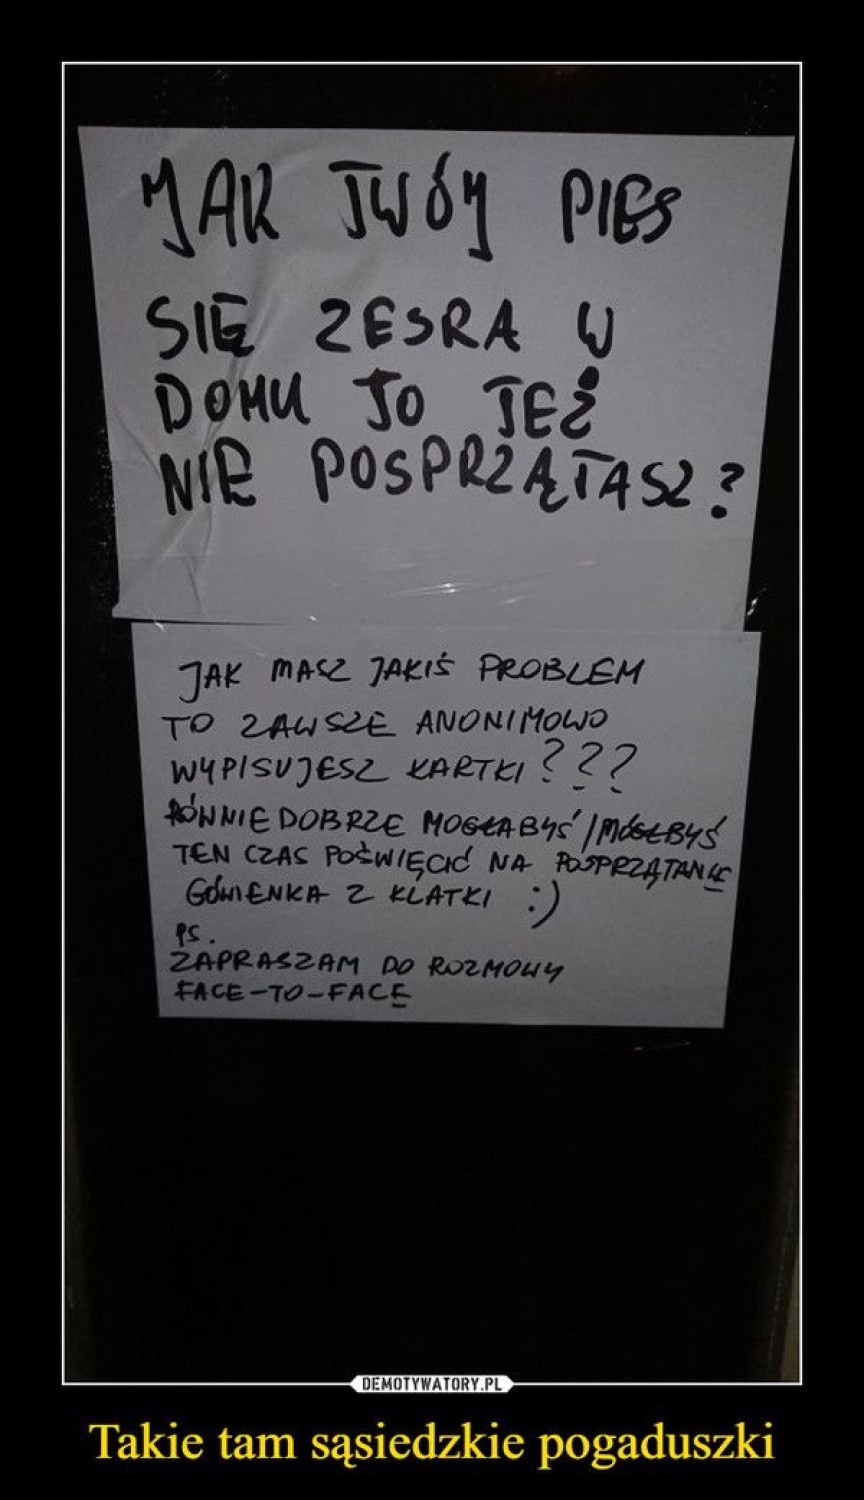 JAK TWÓJ PIES
SIĘ ZESRA W
DOMU TO TEŻ
NIE POSPRZĄTASZ?
JAK MASZ JAKIŚ PROBLEM
TO ZAWSZE ANONIMOWO
WYPISUJESZ KARTKI???
RÓWNIE DOBRZE MOGŁABYŚ / MÓGŁBYŚ
TEN CZAS POŚWIĘCIĆ NA POSPRZĄTANIE
GÓWIENKA Z KLATKI :)
PS.
ZAPRASZAM DO ROZMOWY
FACE-TO-FACE
DEMOTYWATORY.PL
Takie tam sąsiedzkie pogaduszki